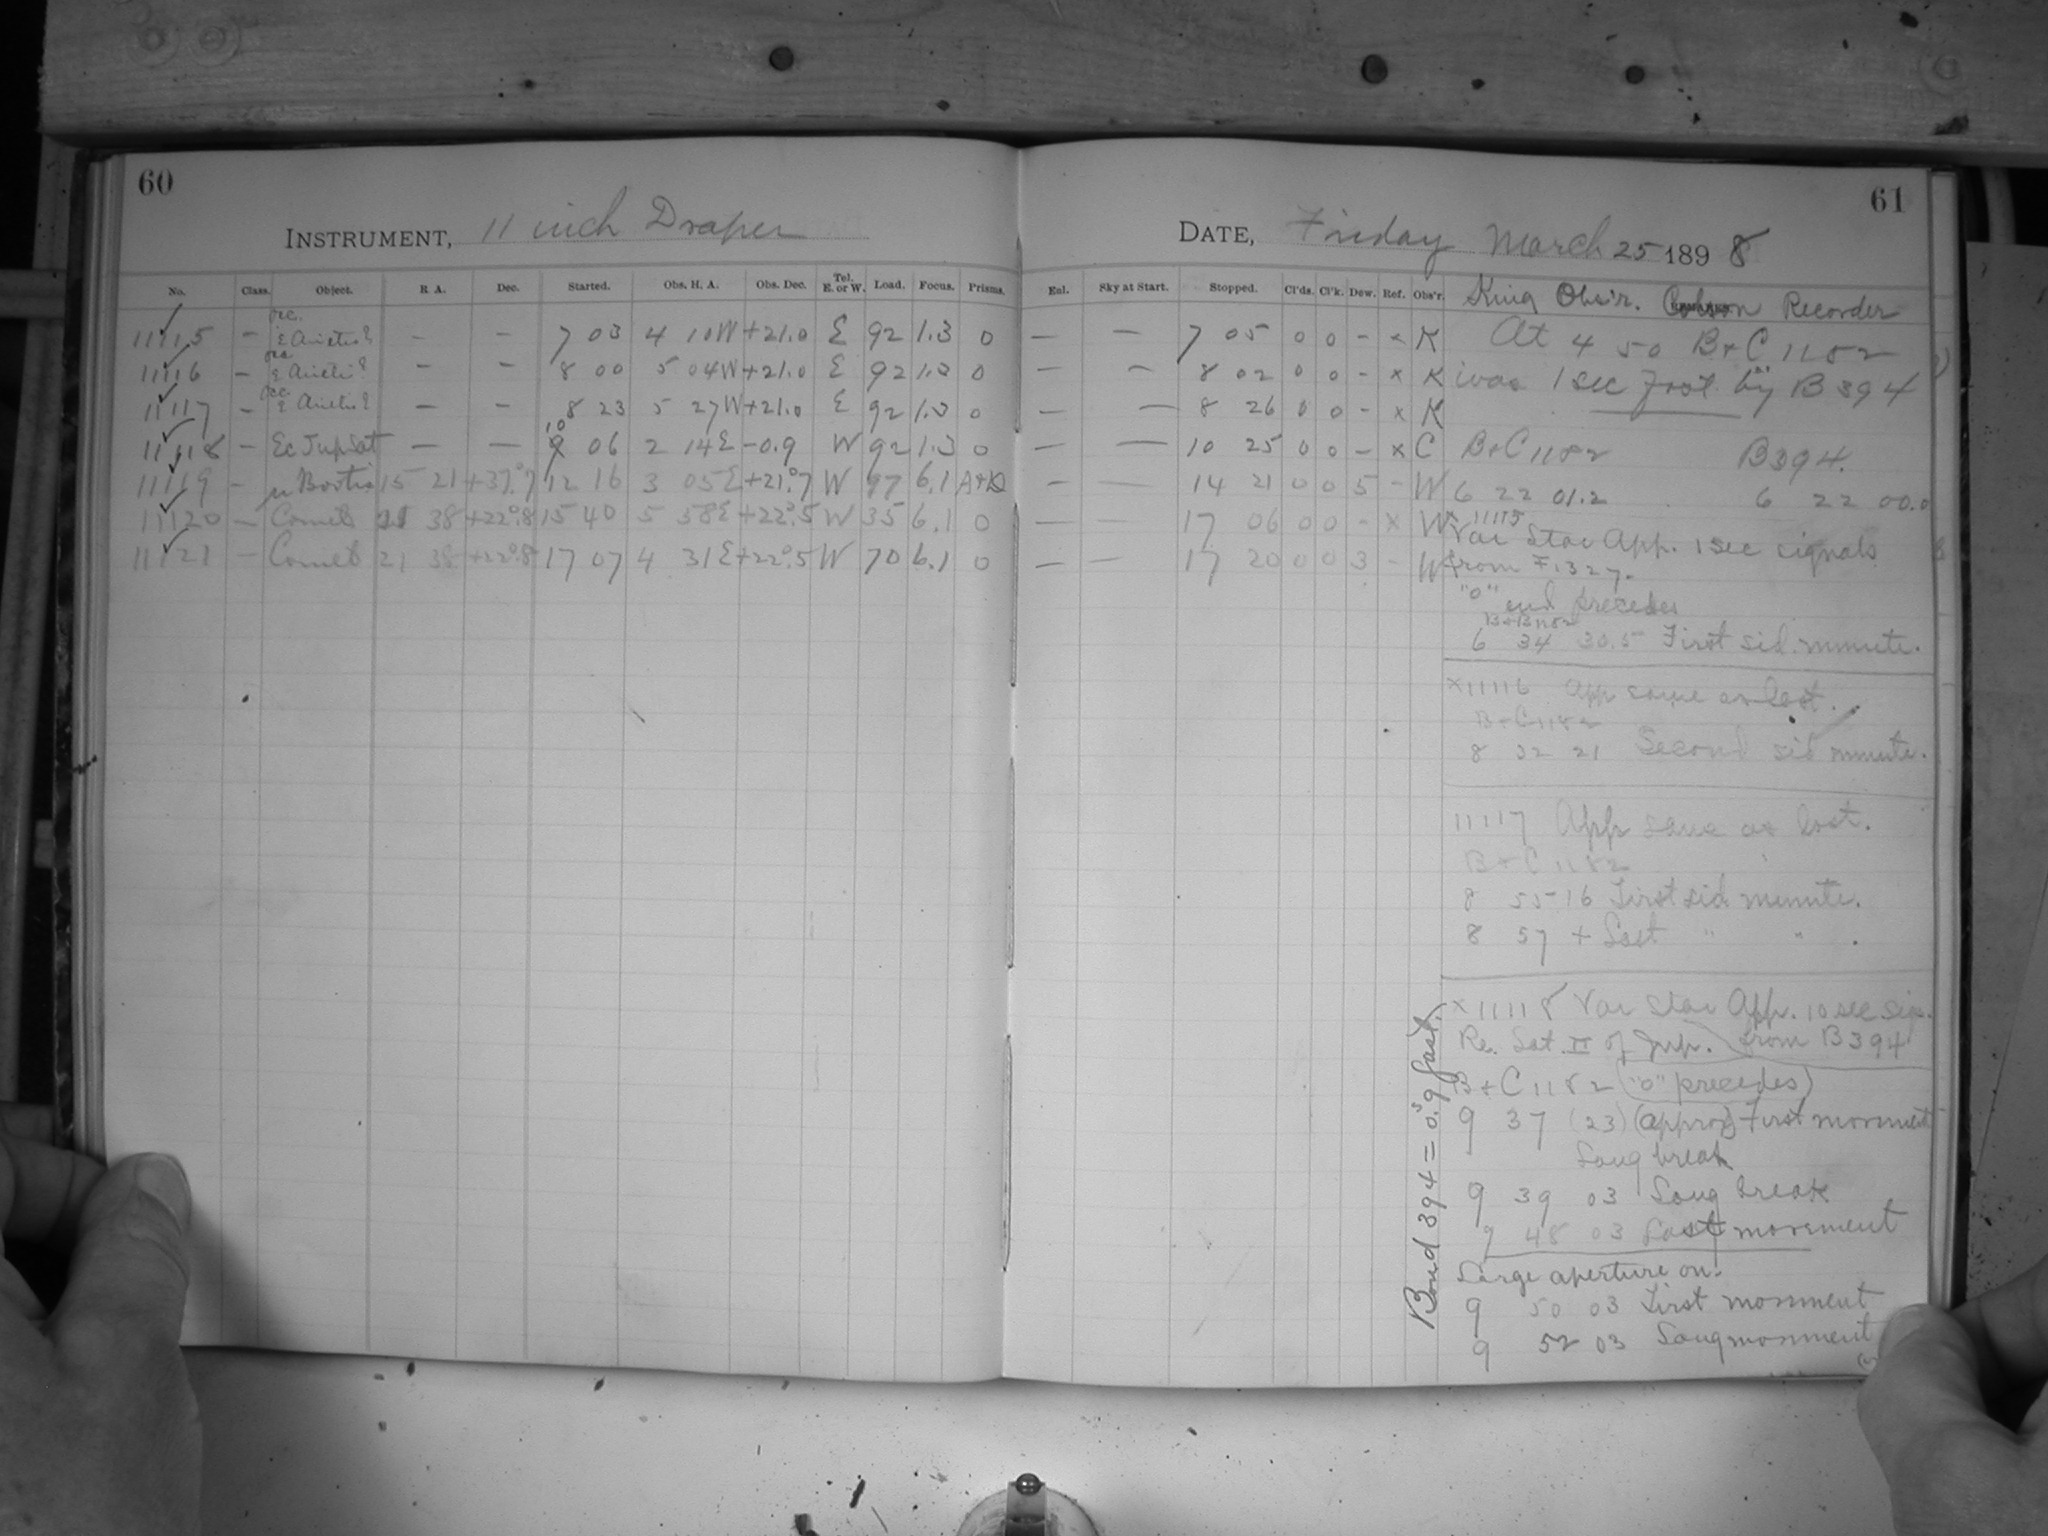 60
INSTRUMENT, 11 inch Draper
No. Class. Object. R A. Dec. Started. Obs. H. A. Obs. Dec. Tel. E. or W. Load. Focus. Prisms.
11115 – occ. ε Arietis? – – 7 03 4 10W +21.0 E 92 1.3 0
11116 – occ. ε Arietis? – – 8 00 5 04W +21.0 E 92 1.3 0
11117 – occ. ε Arietis? – – 8 23 5 27W +21.0 E 92 1.3 0
11118 – Ec Jup Sat – – 10 06 2 14E -0.9 W 92 1.3 0
11119 – μ Bootis 15 21 +37.°7 12 16 3 05E +21.°7 W 97 6.1
11120 – Comet 21 38 +22.°8 15 40 5 58E +22.°5 W 35 6.1 0
11121 – Comet 21 38 +22.°8 17 07 4 31E +22.°5 W 70 6.1 0
61
DATE, Friday March 25 1898
Enl. Sky at Start. Stopped. Cl'ds. Cl'k. Dew. Ref. Obs'r. King Obs'r. Recorder
– – 7 05 0 0 - x K
– – 8 02 0 0 - x K
– – 8 26 0 0 - x K
– – 10 25 0 0 - x C
– – 14 21 0 0 5 - W
– – 17 06 0 0 - x W
– – 17 20 0 0 3 - W
At 4 50 B+C 1182
was 1 sec fast by B 394
B+C 1182 B 394.
6 22 01.2 6 22 00.0
x 11115
Var Star App. 1 sec signals
from F. 327.
"0" end precedes
6 34 30.5 First sid. minute.
x 11116 App same as last.
B+C 1182
8 32 21 Second sid minute.
11117 App same as last.
B+C 1182
8 55 16 First sid. minute.
8 57 + Last " " .
x 11118 Var Star App. 10 sec. sigs.
Re. Sat. II of Jup. from B 394
B+C 1182 ("0" precedes)
9 37 (23) (approx) First movement
Long break
9 39 03 Long break
9 48 03 Last movement
Large aperture on.
9 50 03 First movement
9 52 03 Long movement
Bond 394 = 0.ˢ9 fast.